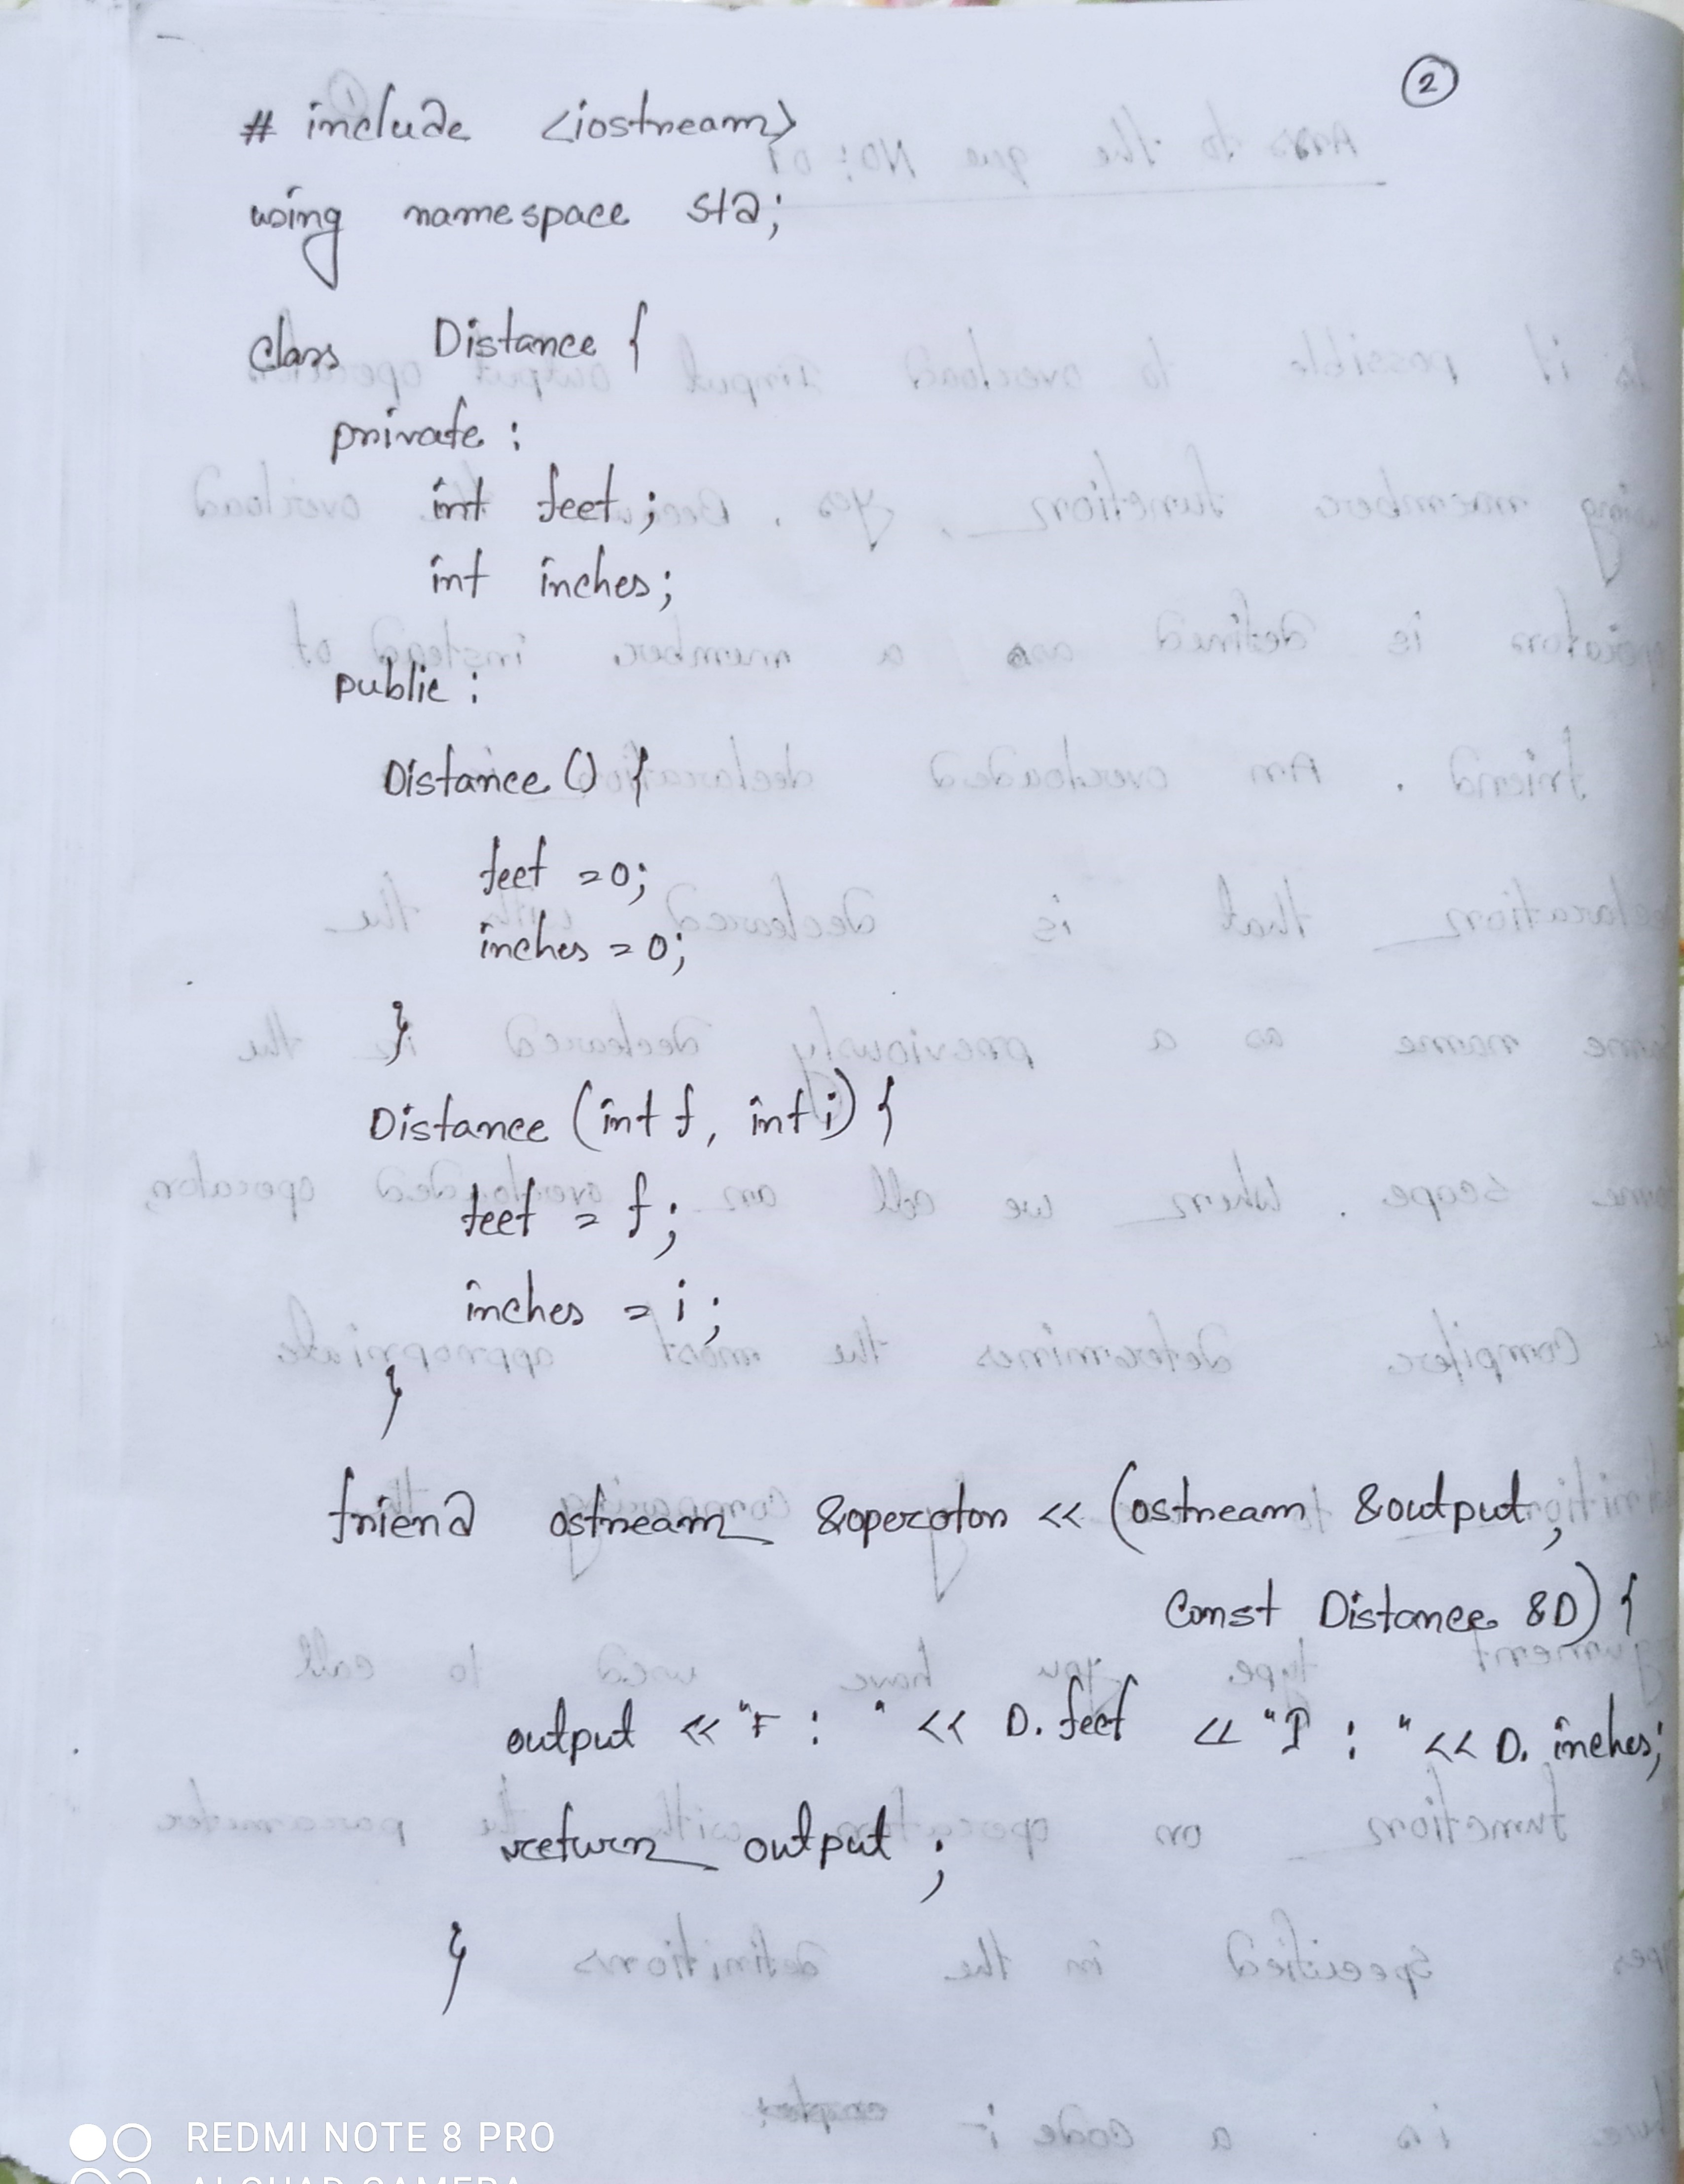 2
# include <iostream>
using namespace std;
class Distance {
private :
int feet ;
int inches ;
public :
Distance () {
feet = 0;
inches = 0;
}
Distance (int f, int i) {
feet = f ;
inches = i ;
}
friend ostream &operator << (ostream &output,
const Distance &D) {
output << "F : " << D. feet << "I : " << D. inches;
return output ;
}
REDMI NOTE 8 PRO
AI QUAD CAMERA